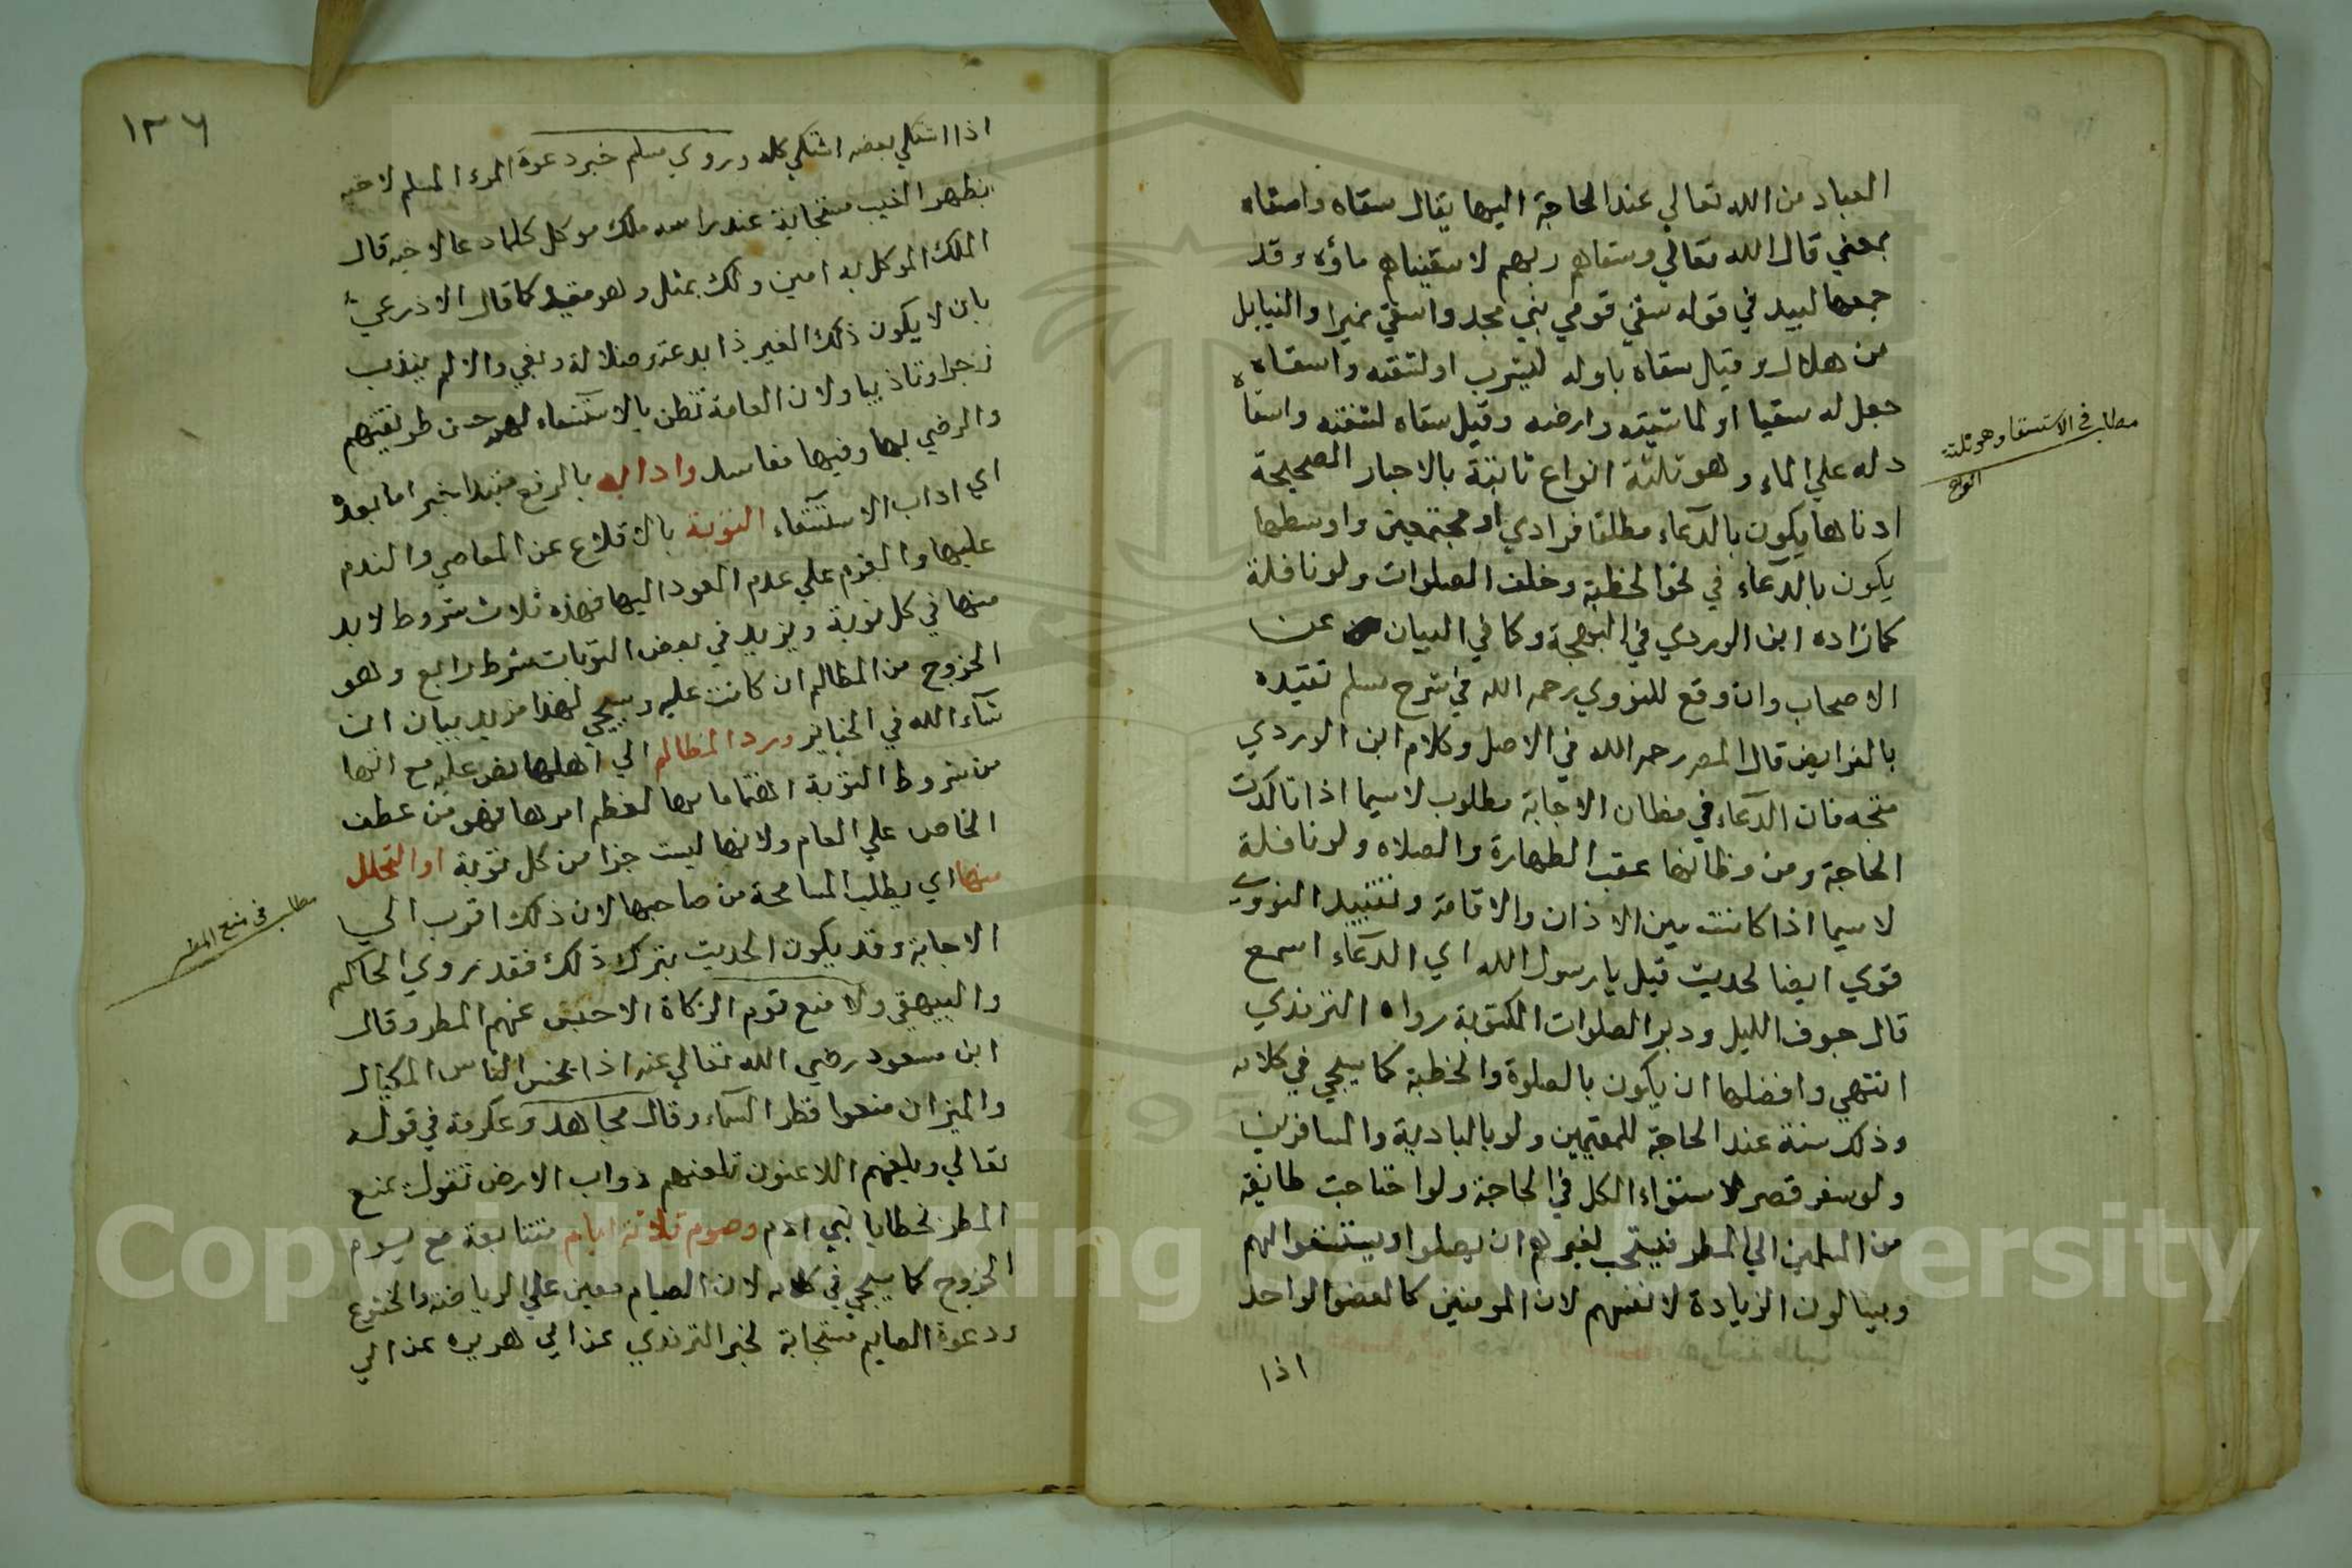 العباد من الله تعالي عند الحاجة اليها يقال سقاه واسقاه
بمعني قال الله تعالي وسقاهم ربهم لاسقيناهم ماؤه وقد
جمعها لبيد في قوله سقي قومي بني مجد واسقي نميرا والنبايل
من هلال وقيل سقاه باوله ليشرب او لشفته واسقاه
جعل له سقيا او لماشيته وارضه وقيل سقاه لشفته واسقاه
دله علي الماء وهو ثلثة انواع ثابتة بالاخبار الصحيحة
ادناها يكون بالدعاء مطلقا فرادي او مجتمعين واوسطها
يكون بالدعاء في نحو الخطبة وخلف الصلوات ولو نافلة
كما زاده ابن الوردي في البهجة وكما في البيان عن
الاصحاب وان وقع للنووي رحمه الله في شرح مسلم تقييده
بالفرايض قال المصر رحمه الله في الاصل وكلام ابن الوردي
متجه فان الدعاء في مظان الاجابة مطلوب لاسيما اذا تاكدت
الحاجة ومن وظائفها عقب الطهارة والصلاه ولو نافلة
لاسيما اذا كانت بين الاذان والاقامة وتقييد النووي
قوي ايضا لحديث قيل يا رسول الله اي الدعاء اسمع
قال جوف الليل ودبر الصلوات المكتوبة رواه الترمذي
انتهي وافضلها ان يكون بالصلوة والخطبة كما سيجي في كلامه
وذلك سنة عند الحاجة للمقيمين ولو بالبادية والمسافرين
ولو سفر قصر لاستواء الكل في الحاجة ولو احتاجت طايفة
من المسلمين الي المطر فيستحب لغيرهم ان يصلوا ويستسقوا لهم
ويسالون الزيادة لانفسهم لان المومنين كالعضو الواحد
اذا
مطلب في الاستسقا وهو ثلثة
انواع
١٣٦
اذا اشتكي بعضه اشتكي كله وروي مسلم خبر دعوة المرء المسلم لاخيه
بظهر الغيب مستجابة عند راسه ملك موكل كلما دعا لاخيه قال
الملك الموكل به امين ولك بمثل وهو مقيد كما قال الاذرعي
بان لا يكون ذلك الغير ذا بدعة وضلالة وبغي والا لم يندب
زجرا وتاديبا ولان العامة تظن بالاستسقاء لهم حسن طريقتهم
والرضي بها وفيها مفاسد وادابه بالرفع مبتدا خبر اما بعده
اي اداب الاستسقاء التوبة بالاقلاع عن المعاصي والندم
عليها والعزم علي عدم العود اليها فهذه ثلاث شروط لابد
منها في كل توبة ويزيد في بعض التوبات شرط رابع وهو
الخروج من المظالم ان كانت عليه وسيجي لهذا مزيد بيان ان
شاء الله في الجنايز ورد المظالم الي اهلها نص عليه مع انها
من شروط التوبة اهتماما بها لعظم امرها فهو من عطف
الخاص علي العام ولانها ليست جزا من كل توبة او التحلل
منها اي يطلب المسامحة من صاحبها لان ذلك اقرب الي
الاجابة وقد يكون الحديث بترك ذلك فقد روي الحاكم
والبيهقي ولا منع قوم الزكاة الا حبس عنهم المطر وقال
ابن مسعود رضي الله تعالي عنه اذا بخس الناس المكيال
والميزان منعوا قطر السماء وقال مجاهد وعكرمة في قوله
تعالي ويلعنهم اللاعنون تلعنهم دواب الارض تقول نمنع
المطر لخطايا بني ادم وصوم ثلاثة ايام متتابعة مع يوم
الخروج كما سيجي في كلامه لان الصيام معين علي الرياضة والخشوع
ودعوة الصايم مستجابة لخبر الترمذي عن ابي هريره عن النبي
مطلب في منع المطر
Copyright © King Saud University
1957